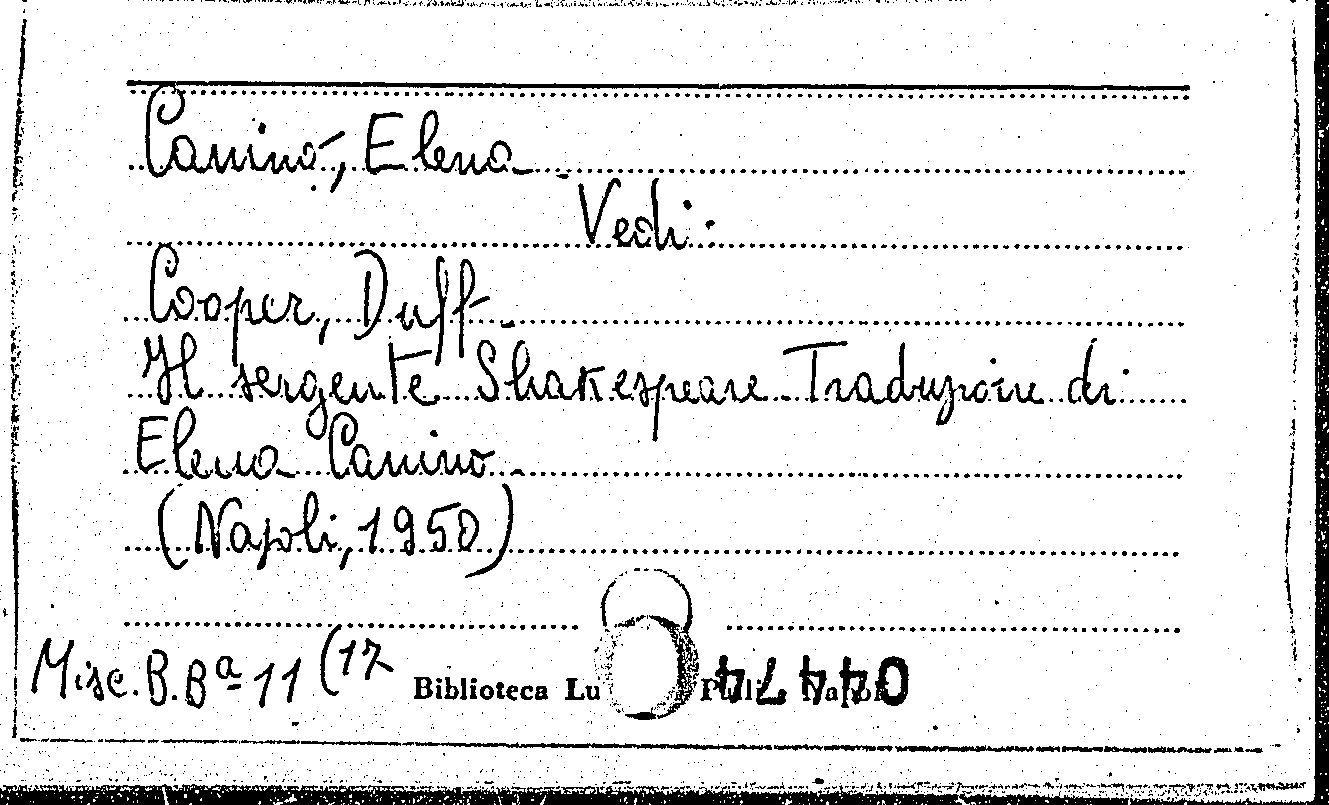 Canino, Elena
Vedi:
Cooper, Duff
Il sergente Shakespeare. Traduzione di
Elena Canino.
(Napoli, 1950)
Misc. B. Bª 11 (17
Biblioteca Lu
04474